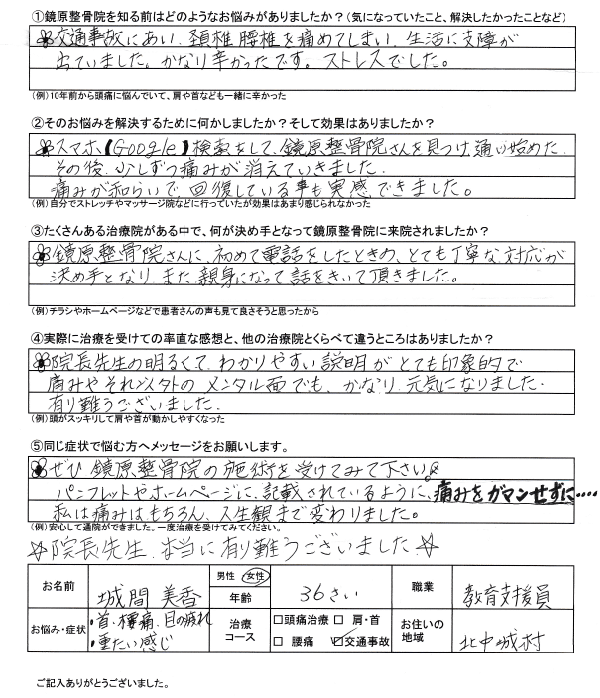 ①鏡原整骨院を知る前はどのようなお悩みがありましたか?(気になっていたこと、解決したかったことなど)
交通事故にあい、頚椎 腰椎を痛めてしまい、生活に支障が
出ていました。かなり辛かったです。ストレスでした。
(例)10年前から頭痛に悩んでいて、肩や首なども一緒に辛かった
②そのお悩みを解決するために何かしましたか?そして効果はありましたか?
スマホ【Google】検索をして、鏡原整骨院さんを見つけ、通い始めた。
その後、少しずつ痛みが消えていきました。
痛みが和らいで、回復している事も実感できました。
(例)自分でストレッチやマッサージ院などに行っていたが効果はあまり感じられなかった
③たくさんある治療院がある中で、何が決め手となって鏡原整骨院に来院されましたか?
鏡原整骨院さんに、初めて電話をしたときの、とても丁寧な対応が
決め手となり、また、親身になって話をきいて頂きました。
(例)チラシやホームページなどで患者さんの声も見て良さそうと思ったから
④実際に治療を受けての率直な感想と、他の治療院とくらべて違うところはありましたか?
院長先生の明るくて、わかりやすい説明がとても印象的で
痛みやそれ以外のメンタル面でも、かなり、元気になりました。
有り難うございました。
(例)頭がスッキリして肩や首が動かしやすくなった
⑤同じ症状で悩む方へメッセージをお願いします。
ぜひ鏡原整骨院の施術を受けてみて下さい。
パンフレットやホームページに、記載されているように、痛みをガマンせずに‥‥
私は痛みはもちろん、人生観まで変わりました。
(例)安心して通院ができました。一度治療を受けてみてください。
☆院長先生、本当に有り難うございました☆
お名前 城間 美香 男性 女性 年齢 36さい 職業 教育支援員
お悩み・症状 ・首・腰痛、目の疲れ ・重たい感じ 治療コース □頭痛治療 □肩・首 □腰痛 ☑交通事故 お住いの地域 北中城村
ご記入ありがとうございました。